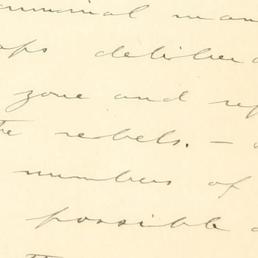 criminal man
ops deliber
zone and rep
the rebels. —
numbers of
possible